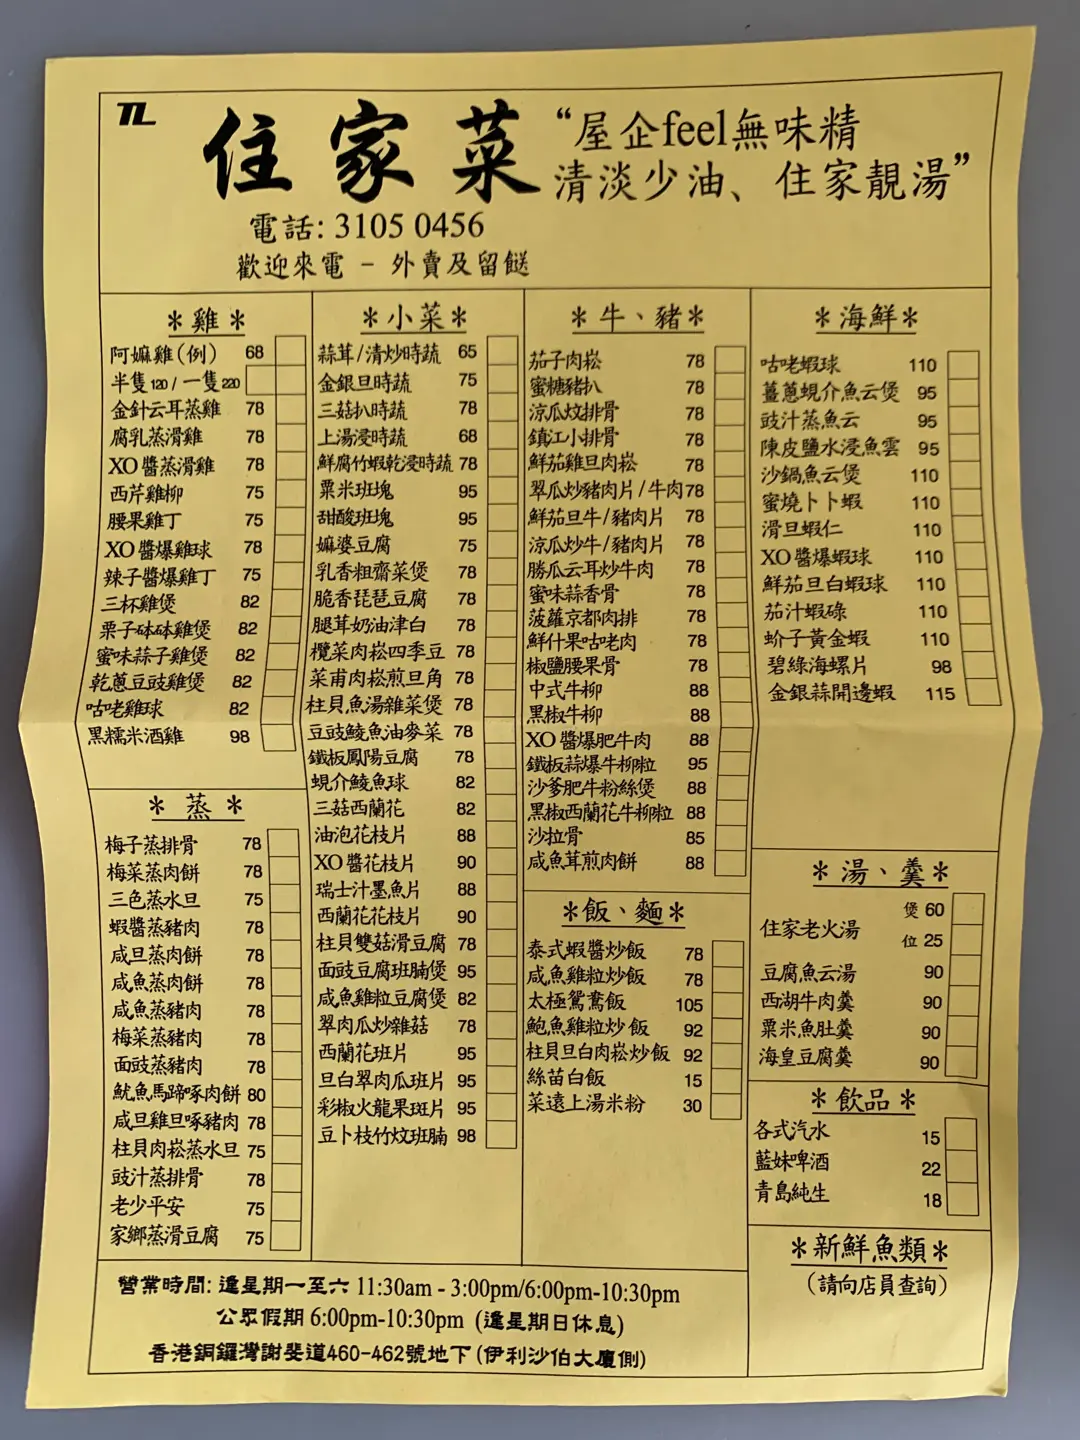 TL
住家菜
“屋企feel無味精
清淡少油、住家靚湯”
電話: 3105 0456
歡迎來電 - 外賣及留餸
*雞*
阿嫲雞(例) 68
半隻120 / 一隻220
金針云耳蒸雞 78
腐乳蒸滑雞 78
XO醬蒸滑雞 78
西芹雞柳 75
腰果雞丁 75
XO醬爆雞球 78
辣子醬爆雞丁 75
三杯雞煲 82
栗子砵砵雞煲 82
蜜味蒜子雞煲 82
乾蔥豆豉雞煲 82
咕咾雞球 82
黑糯米酒雞 98
*蒸*
梅子蒸排骨 78
梅菜蒸肉餅 78
三色蒸水旦 75
蝦醬蒸豬肉 78
咸旦蒸肉餅 78
咸魚蒸肉餅 78
咸魚蒸豬肉 78
梅菜蒸豬肉 78
面豉蒸豬肉 78
魷魚馬蹄啄肉餅 80
咸旦雞旦啄豬肉 78
柱貝肉崧蒸水旦 75
豉汁蒸排骨 78
老少平安 75
家鄉蒸滑豆腐 75
*小菜*
蒜茸/清炒時蔬 65
金銀旦時蔬 75
三菇扒時蔬 78
上湯浸時蔬 68
鮮腐竹蝦乾浸時蔬 78
粟米班塊 95
甜酸班塊 95
嫲婆豆腐 75
乳香粗齋菜煲 78
脆香琵琶豆腐 78
腿茸奶油津白 78
欖菜肉崧四季豆 78
菜甫肉崧煎旦角 78
柱貝魚湯雜菜煲 78
豆豉鯪魚油麥菜 78
鐵板鳳陽豆腐 78
蜆介鯪魚球 82
三菇西蘭花 82
油泡花枝片 88
XO醬花枝片 90
瑞士汁墨魚片 88
西蘭花花枝片 90
柱貝雙菇滑豆腐 78
面豉豆腐班腩煲 95
咸魚雞粒豆腐煲 82
翠肉瓜炒雜菇 78
西蘭花班片 95
旦白翠肉瓜班片 95
彩椒火龍果斑片 95
豆卜枝竹炆班腩 98
*牛、豬*
茄子肉崧 78
蜜糖豬扒 78
涼瓜炆排骨 78
鎮江小排骨 78
鮮茄雞旦肉崧 78
翠瓜炒豬肉片/牛肉 78
鮮茄旦牛/豬肉片 78
涼瓜炒牛/豬肉片 78
勝瓜云耳炒牛肉 78
蜜味蒜香骨 78
菠蘿京都肉排 78
鮮什果咕老肉 78
椒鹽腰果骨 78
中式牛柳 88
黑椒牛柳 88
XO醬爆肥牛肉 88
鐵板蒜爆牛柳粒 95
沙爹肥牛粉絲煲 88
黑椒西蘭花牛柳粒 88
沙拉骨 85
咸魚茸煎肉餅 88
*飯、麵*
泰式蝦醬炒飯 78
咸魚雞粒炒飯 78
太極鴛鴦飯 105
鮑魚雞粒炒飯 92
柱貝旦白肉崧炒飯 92
絲苗白飯 15
菜遠上湯米粉 30
*海鮮*
咕咾蝦球 110
薑蔥蜆介魚云煲 95
豉汁蒸魚云 95
陳皮鹽水浸魚雲 95
沙鍋魚云煲 110
蜜燒卜卜蝦 110
滑旦蝦仁 110
XO醬爆蝦球 110
鮮茄旦白蝦球 110
茄汁蝦碌 110
蚧子黃金蝦 110
碧綠海螺片 98
金銀蒜開邊蝦 115
*湯、羹*
住家老火湯 煲 60
位 25
豆腐魚云湯 90
西湖牛肉羹 90
粟米魚肚羹 90
海皇豆腐羹 90
*飲品*
各式汽水 15
藍妹啤酒 22
青島純生 18
*新鮮魚類*
(請向店員查詢)
營業時間: 逢星期一至六 11:30am - 3:00pm/6:00pm-10:30pm
公眾假期 6:00pm-10:30pm (逢星期日休息)
香港銅鑼灣謝斐道460-462號地下(伊利沙伯大廈側)